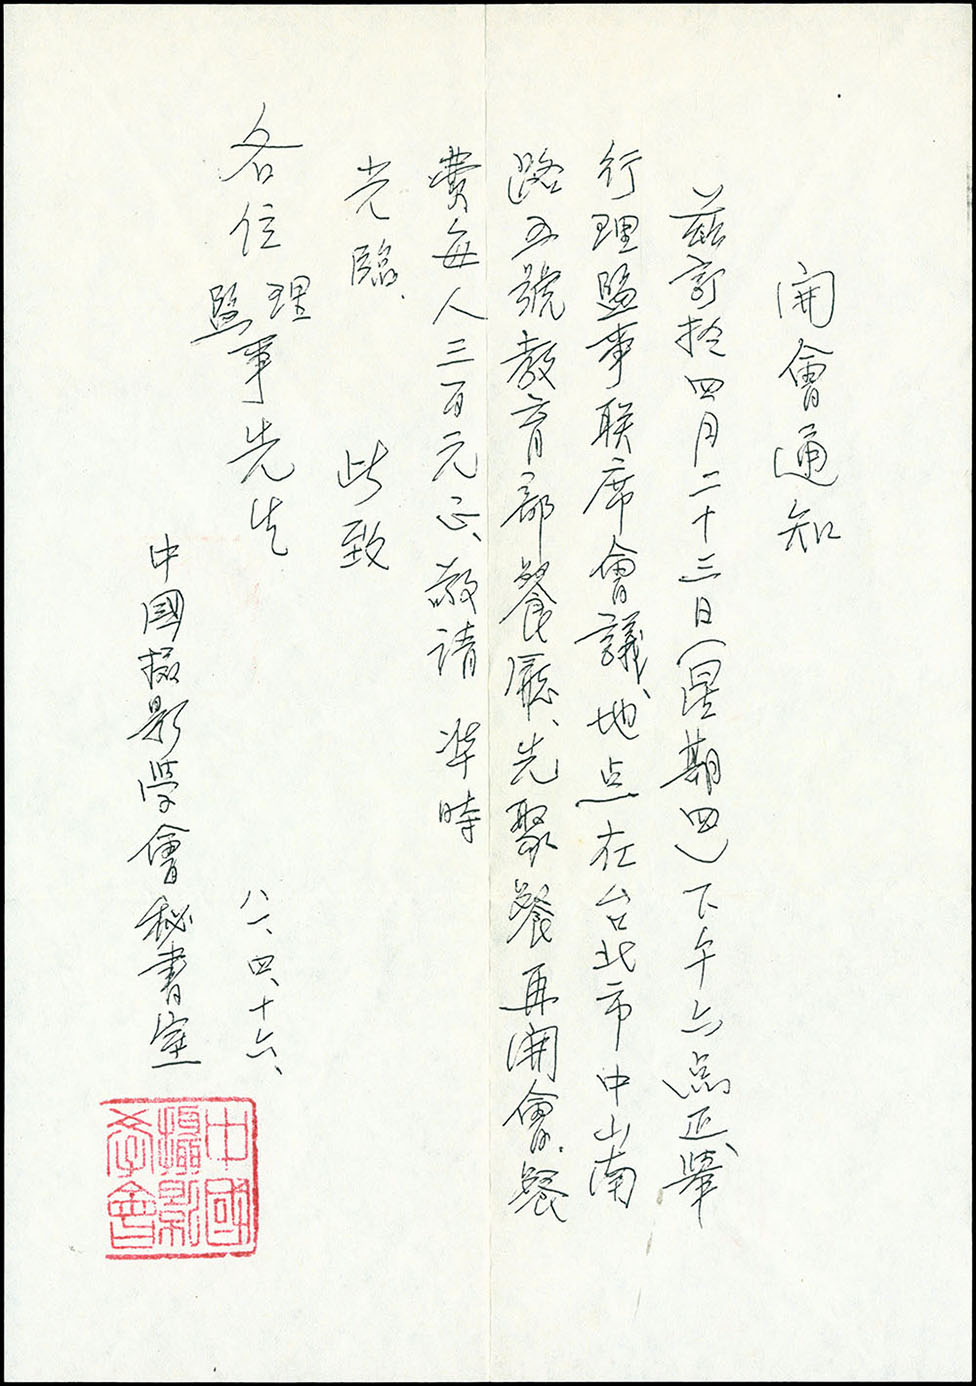 開會通知
茲訂於四月二十三日(星期四)下午六点正、舉
行理監事联席會議、地点在台北市中山南
路五號教育部餐廳、先聚餐再開會、餐
費每人三百元正、敬請 準時
光臨、 此致
各位理監事先生
八一、四、十六、
中國攝影学會秘書室
中國攝影學會